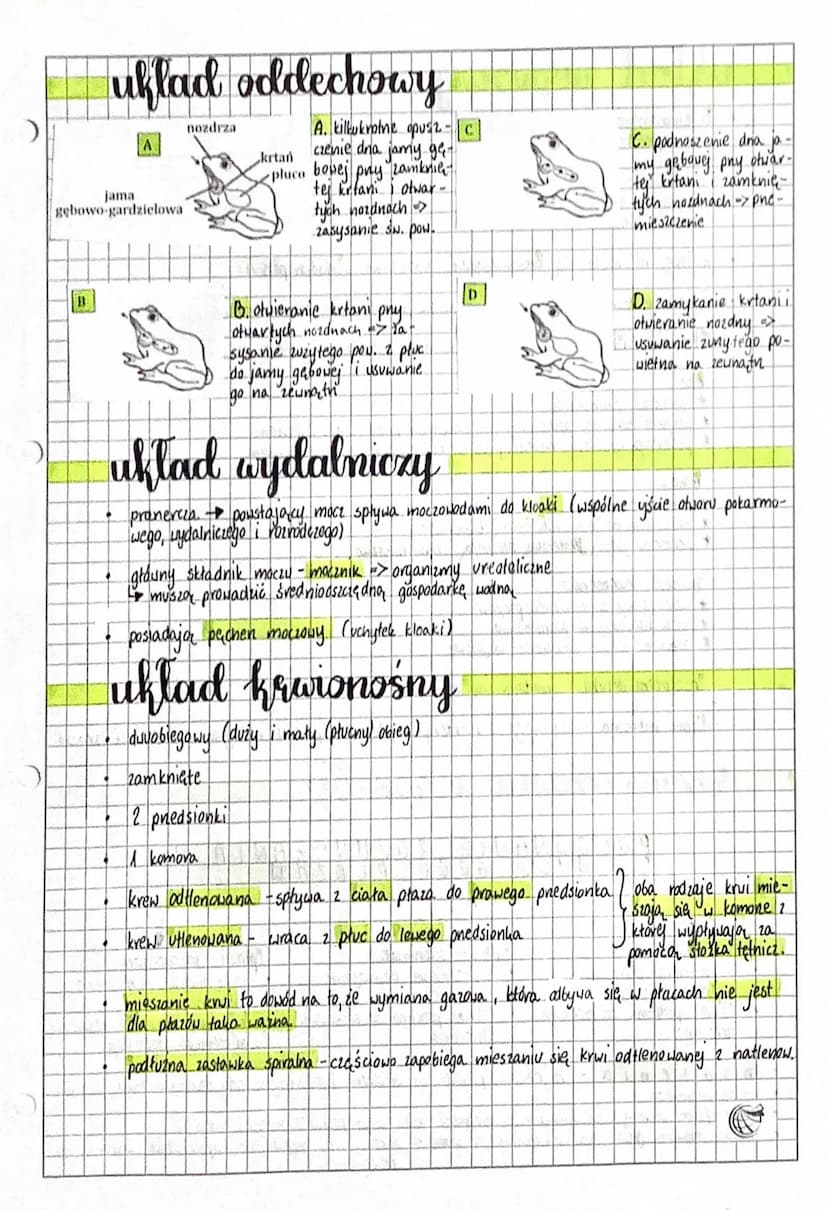 układ oddechowy
A
nozdrza
krtań
płuco
jama
gębowo-gardzielowa
A. kilkukrotne opusz-
czenie dna jamy gę-
bowej przy zamknię-
tej krtani i otwar-
tych nozdrzach =>
zasysanie św. pow.
C
C. podnoszenie dna ja-
my gębowej przy otwar-
tej krtani i zamknię-
tych nozdrzach => prze-
mieszczenie
B
B. otwieranie krtani przy
otwartych nozdrzach => za-
sysanie zużytego pow. z płuc
do jamy gębowej i usuwanie
go na zewnątrz
D
D. zamykanie krtani i
otwieranie nozdrzy =>
usuwanie zużytego po-
wietrza na zewnątrz
układ wydalniczy
• pranercza → powstający mocz spływa moczowodami do kloaki (wspólne ujście otworu pokarmo-
wego, wydalniczego i rozrodczego)
• główny składnik moczu - mocznik => organizmy ureoteliczne
↳ muszą prowadzić średniooszczędną gospodarkę wodną
• posiadają pęcherz moczowy (uchyłek kloaki)
układ krwionośny
• dwuobiegowy (duży i mały (płucny) obieg)
• zamknięte
• 2 przedsionki
• 1 komora
• krew odtlenowana - spływa z ciała płaza do prawego przedsionka
• krew utlenowana - wraca z płuc do lewego przedsionka
oba rodzaje krwi mie-
szają się w komorze z
której wypływają za
pomocą stożka tętnicz.
• mieszanie krwi to dowód na to, że wymiana gazowa, która odbywa się w płucach nie jest
dla płazów tako ważna
• podłużna zastawka spiralna - częściowo zapobiega mieszaniu się krwi odtlenowanej z natlenow.